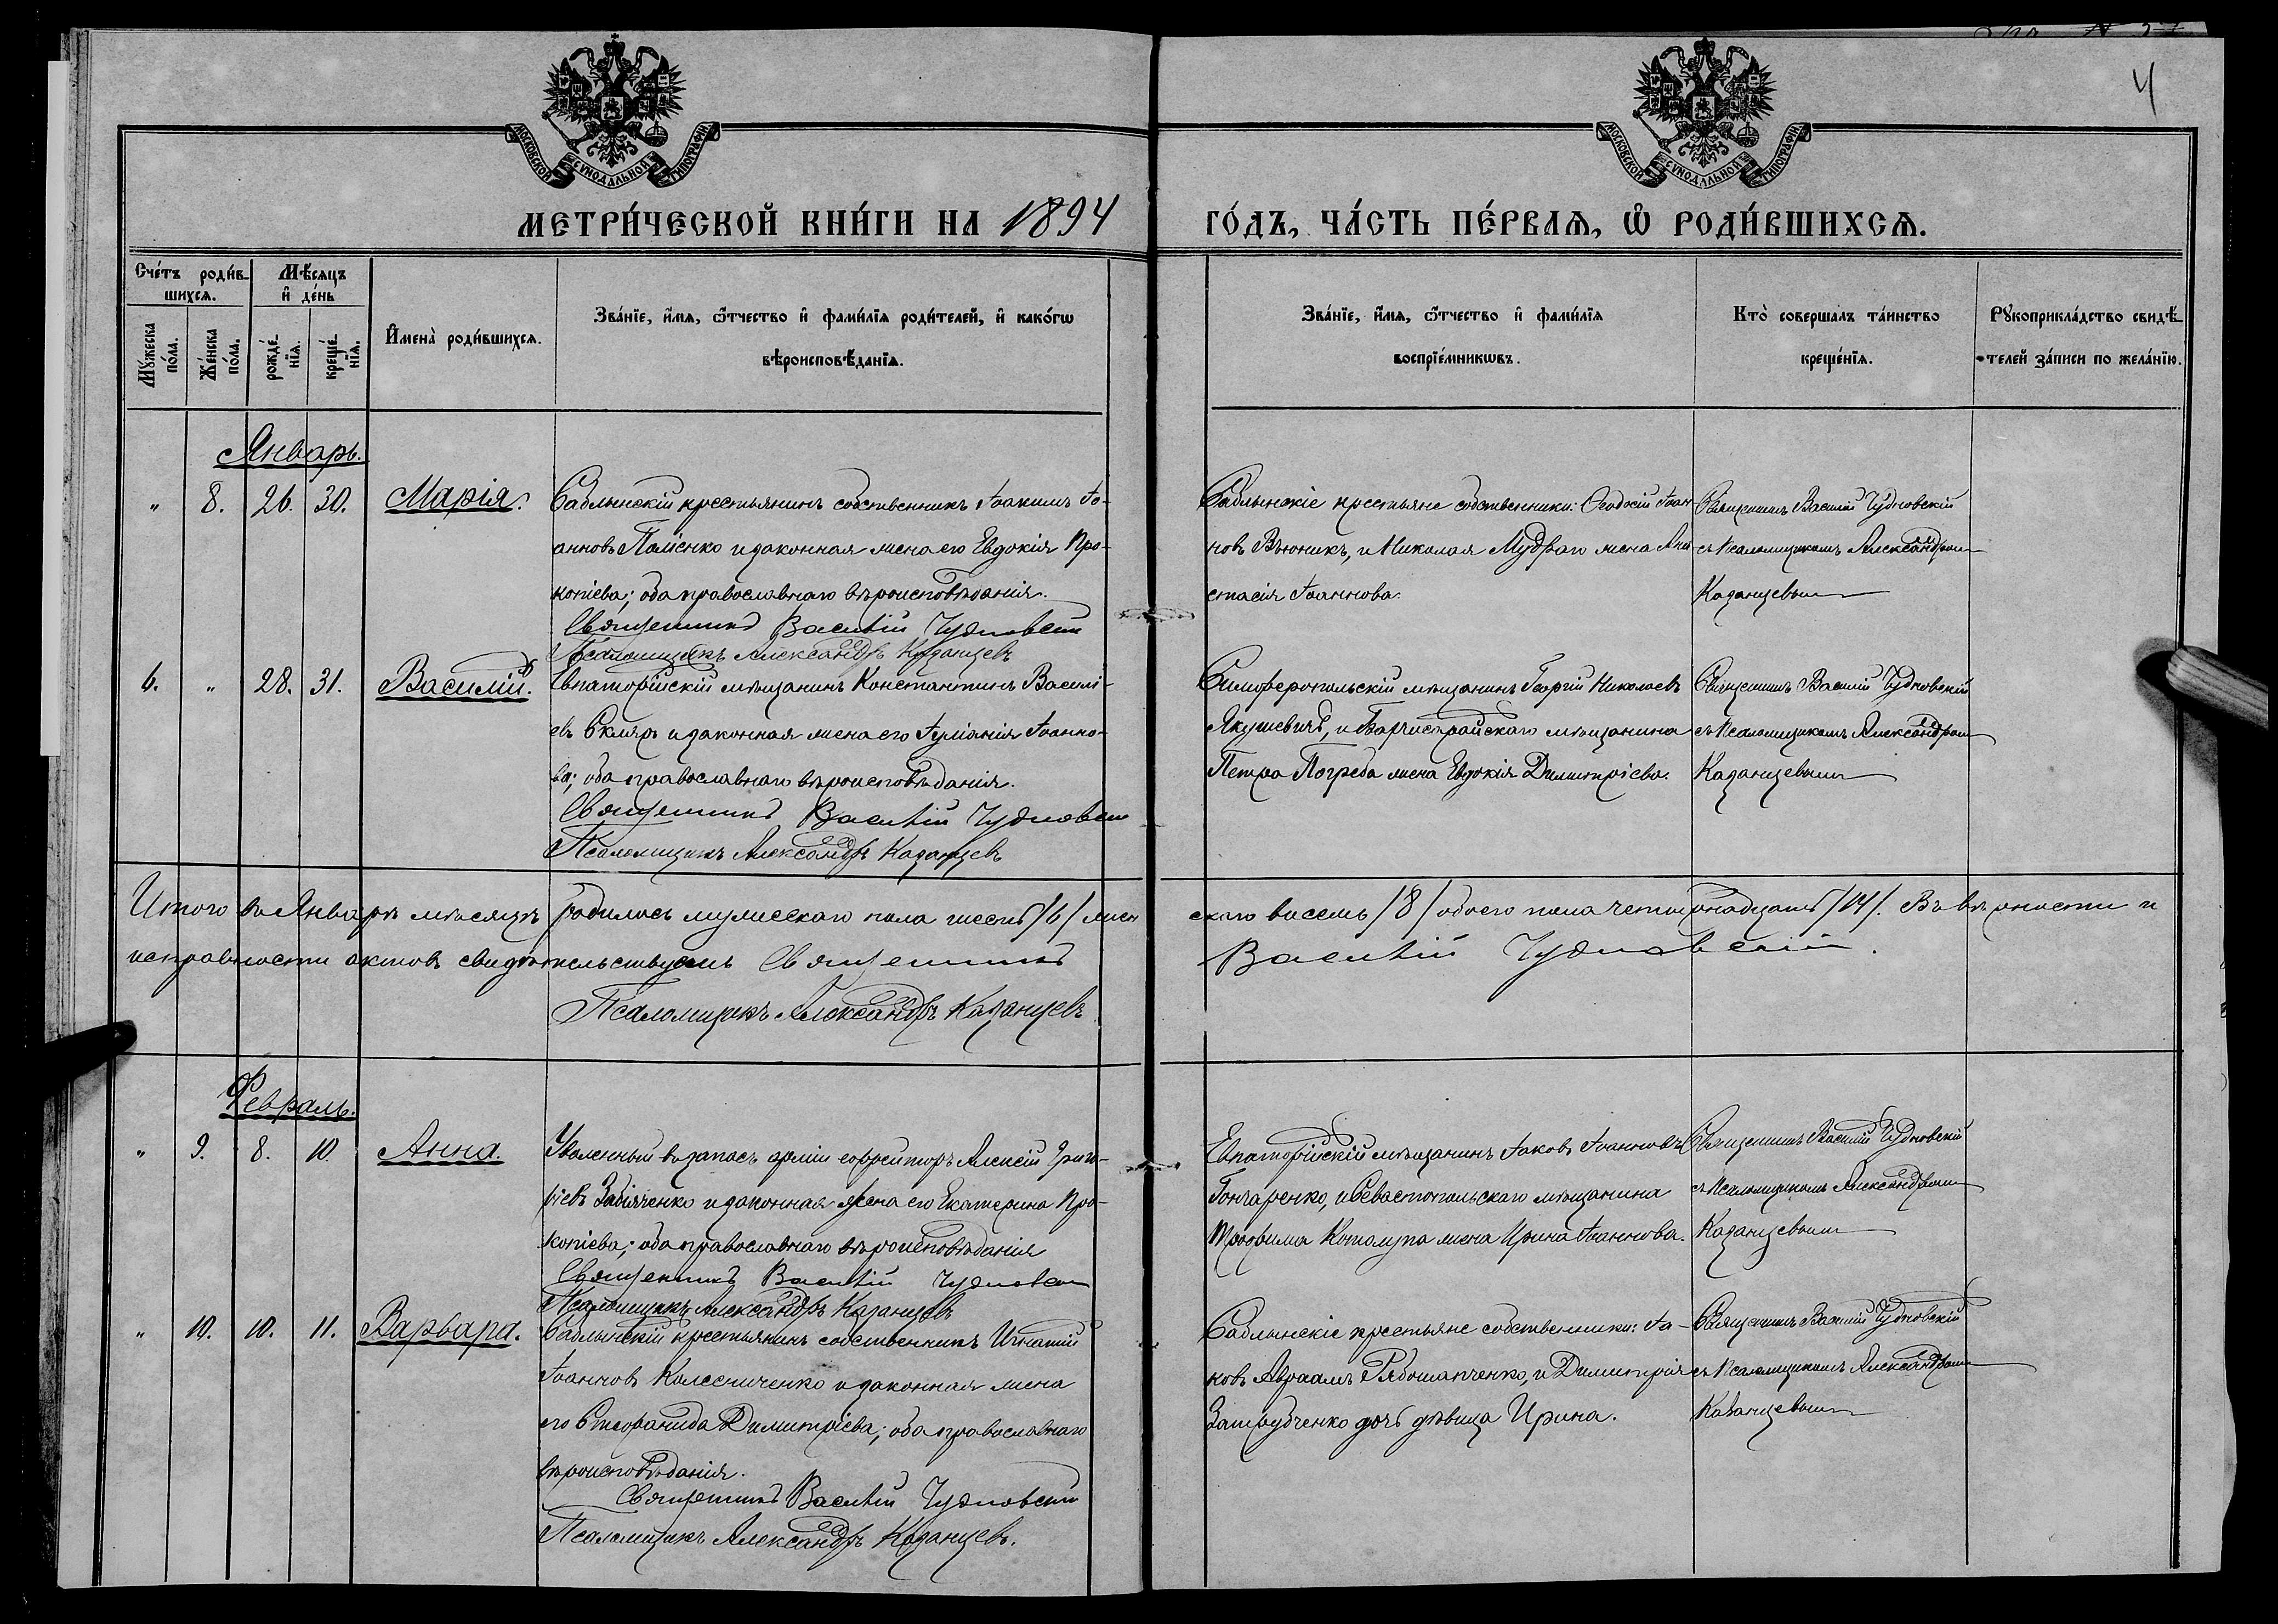 4
МОСКОВСКОЙ СУНОДАЛЬНОЙ ТИПОГРАФІИ
МОСКОВСКОЙ СУНОДАЛЬНОЙ ТИПОГРАФІИ
МЕТРИ́ЧЕСКОЙ КНИ́ГИ НА 1894 ГО́ДЪ, ЧА́СТЬ ПЕ́РВАѦ, Ѡ҆ РОДИ́ВШИХСѦ.
Сче́тъ роди́в-
шихсѧ.
Мѣ́сяцъ
и҆ де́нь
Мꙋ́жеска по́ла.
Же́нска по́ла.
рожде́-
нїѧ.
креще́-
нїѧ.
И҆мена̀ роди́вшихсѧ.
Зва́нїе, и҆́мѧ, ѻ҆́тчество и҆ фами́лїѧ роди́телей, и҆ како́гѡ
вѣроисповѣ́данїѧ.
Зва́нїе, и҆́мѧ, ѻ҆́тчество и҆ фами́лїѧ
воспрїе́мникѡвъ.
Кто̀ совершалъ та́инство
креще́нїѧ.
Рꙋкоприкла́дство свидѣ́-
телей за́писи по жела́нїю.
Январь.
" 8. 26. 30. Марія.
Саблынскій крестьянинъ собственникъ Іоакимъ Іо-
анновъ Паліенко и законная жена его Евдокія Про-
копіева; оба православнаго вѣроисповѣданія.
Священникъ Василій Чудновскій
Псаломщикъ Александръ Казанцевъ
Саблынскіе крестьяне собственники: Ѳеодосій Іоан-
новъ Вьюникъ, и Николая Мудраго жена Ана-
стасія Іоаннова.
Священникъ Василій Чудновскій
съ Псаломщикомъ Александромъ
Казанцевымъ
6. " 28. 31. Василій.
Евпаторійскій мѣщанинъ Константинъ Василі-
евъ Скляръ и законная жена его Іуліанія Іоанно-
ва; оба православнаго вѣроисповѣданія.
Священникъ Василій Чудновскій
Псаломщикъ Александръ Казанцевъ
Симферопольскій мѣщанинъ Георгій Николаевъ
Якушевичъ, и Бахчисарайскаго мѣщанина
Петра Погреба жена Евдокія Димитріева.
Священникъ Василій Чудновскій
съ Псаломщикомъ Александромъ
Казанцевымъ
Итого въ Январѣ мѣсяцѣ родилось мужескаго пола шесть /6/ женскаго восемь /8/ обоего пола четырнадцать /14/. Въ вѣрности и
исправности актовъ свидѣтельствуемъ Священникъ Василій Чудновскій.
Псаломщикъ Александръ Казанцевъ
Февраль.
" 9. 8. 10. Анна.
Уволенный въ запасъ арміи ефрейторъ Алексій Григо-
ріевъ Забіяченко и законная жена его Екатерина Про-
копіева; оба православнаго вѣроисповѣданія
Священникъ Василій Чудновскій
Псаломщикъ Александръ Казанцевъ
Евпаторійскій мѣщанинъ Іаковъ Іоанновъ
Гончаренко, и Севастопольскаго мѣщанина
Трофима Котолупа жена Ирина Іоаннова.
Священникъ Василій Чудновскій
съ Псаломщикомъ Александромъ
Казанцевымъ
" 10. 10. 11. Варвара.
Саблынскій крестьянинъ собственникъ Игнатій
Іоанновъ Колесниченко и законная жена
его Стефанида Димитріева; оба православнаго
вѣроисповѣданія.
Священникъ Василій Чудновскій
Псаломщикъ Александръ Казанцевъ.
Саблынскіе крестьяне собственники: Іа-
ковъ Авраамъ Рябошапченко, и Димитрія
Затрубченко дочь дѣвица Ирина.
Священникъ Василій Чудновскій
съ Псаломщикомъ Александромъ
Казанцевымъ